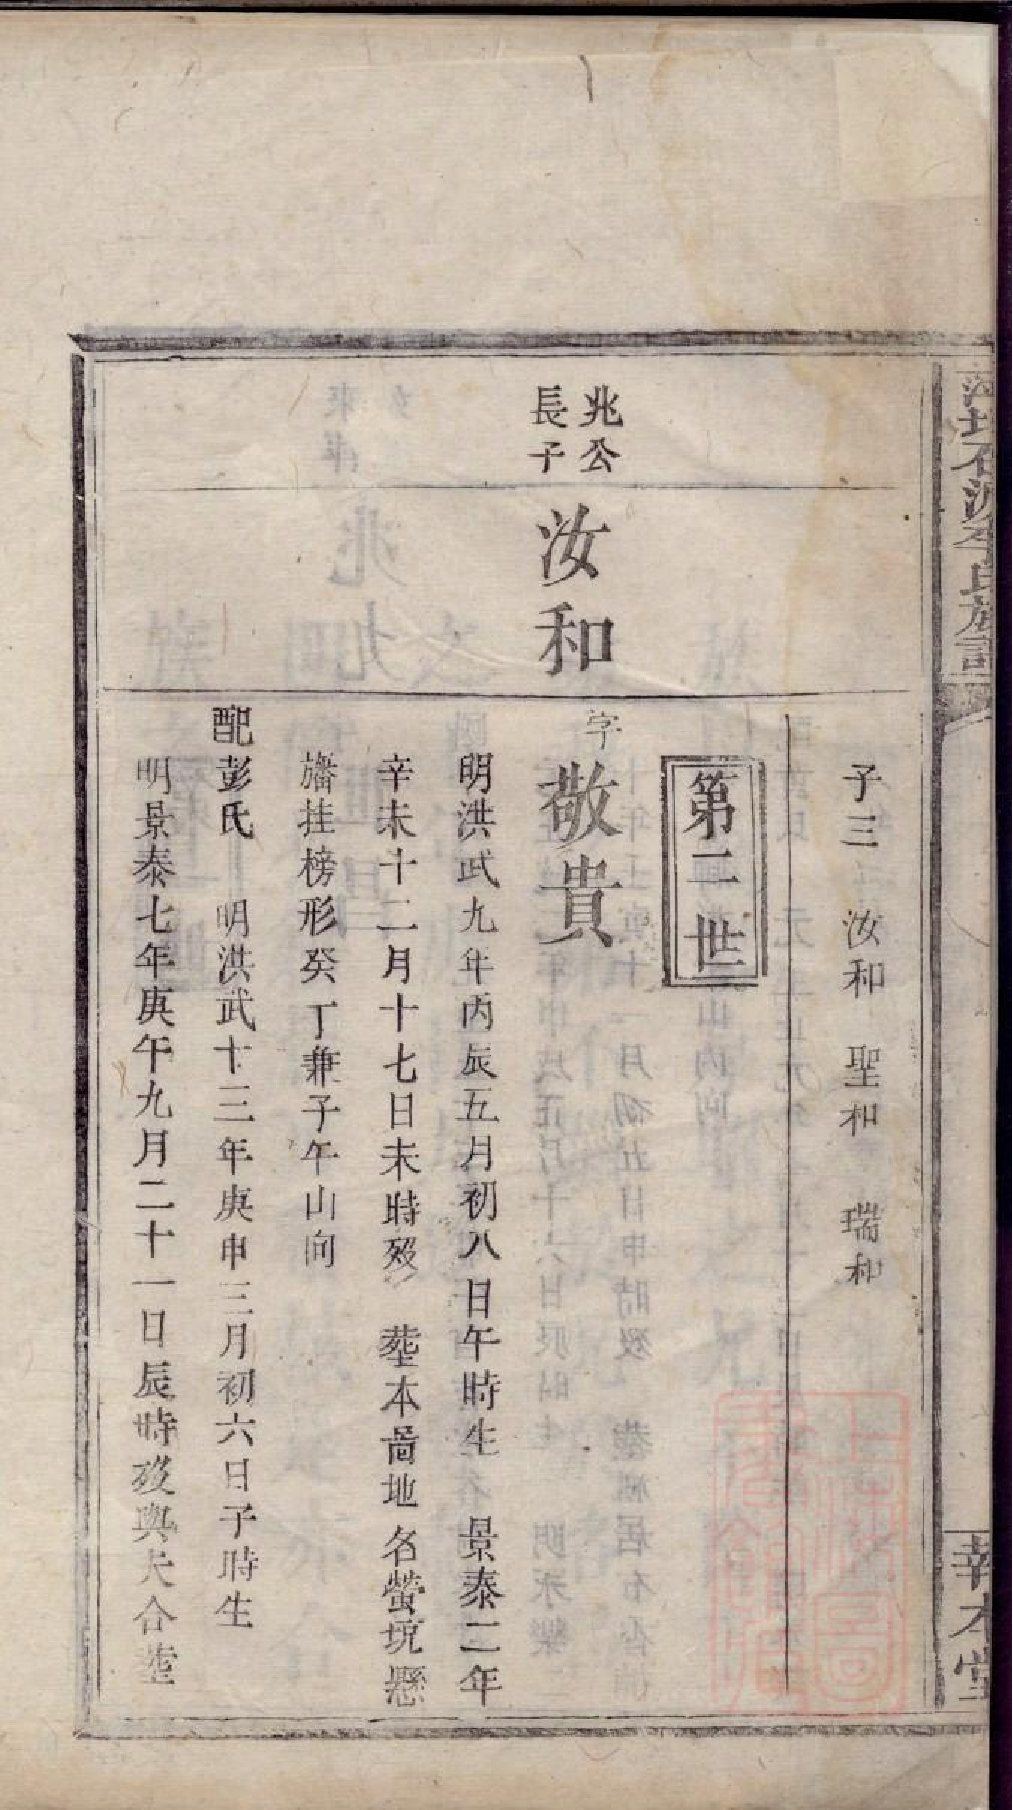 石源李氏族譜
報本堂
子三 汝和 聖和 瑞和
第二世
兆公
長子
汝和
字敬貴
明洪武九年丙辰五月初八日午時生 景泰二年
辛未十二月十七日未時歿 塟本啚地名螢坑懸
旛挂榜形癸丁兼子午山向
配彭氏 明洪武十三年庚申三月初六日子時生
明景泰七年庚午九月二十一日辰時歿與夫合塟